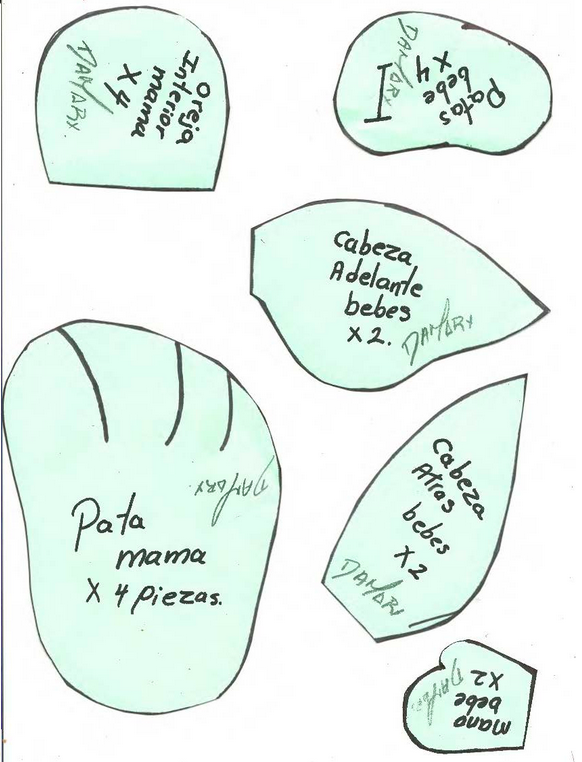 Oreja
Interior
mama
X 4
DAMARY
Patas
bebe
X 4
DAMARY
Cabeza
Adelante
bebes
X 2.
DAMARY
Pata
mama
X 4 Piezas.
DAMARY
Cabeza
Atras
bebes
X 2
DAMARY
mano
bebe
X2